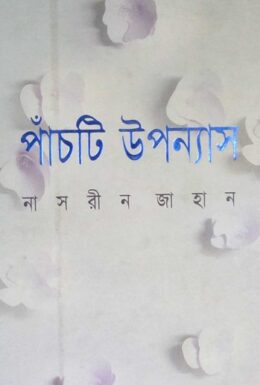 পাঁচটি উপন্যাস
নাসরীন জাহান